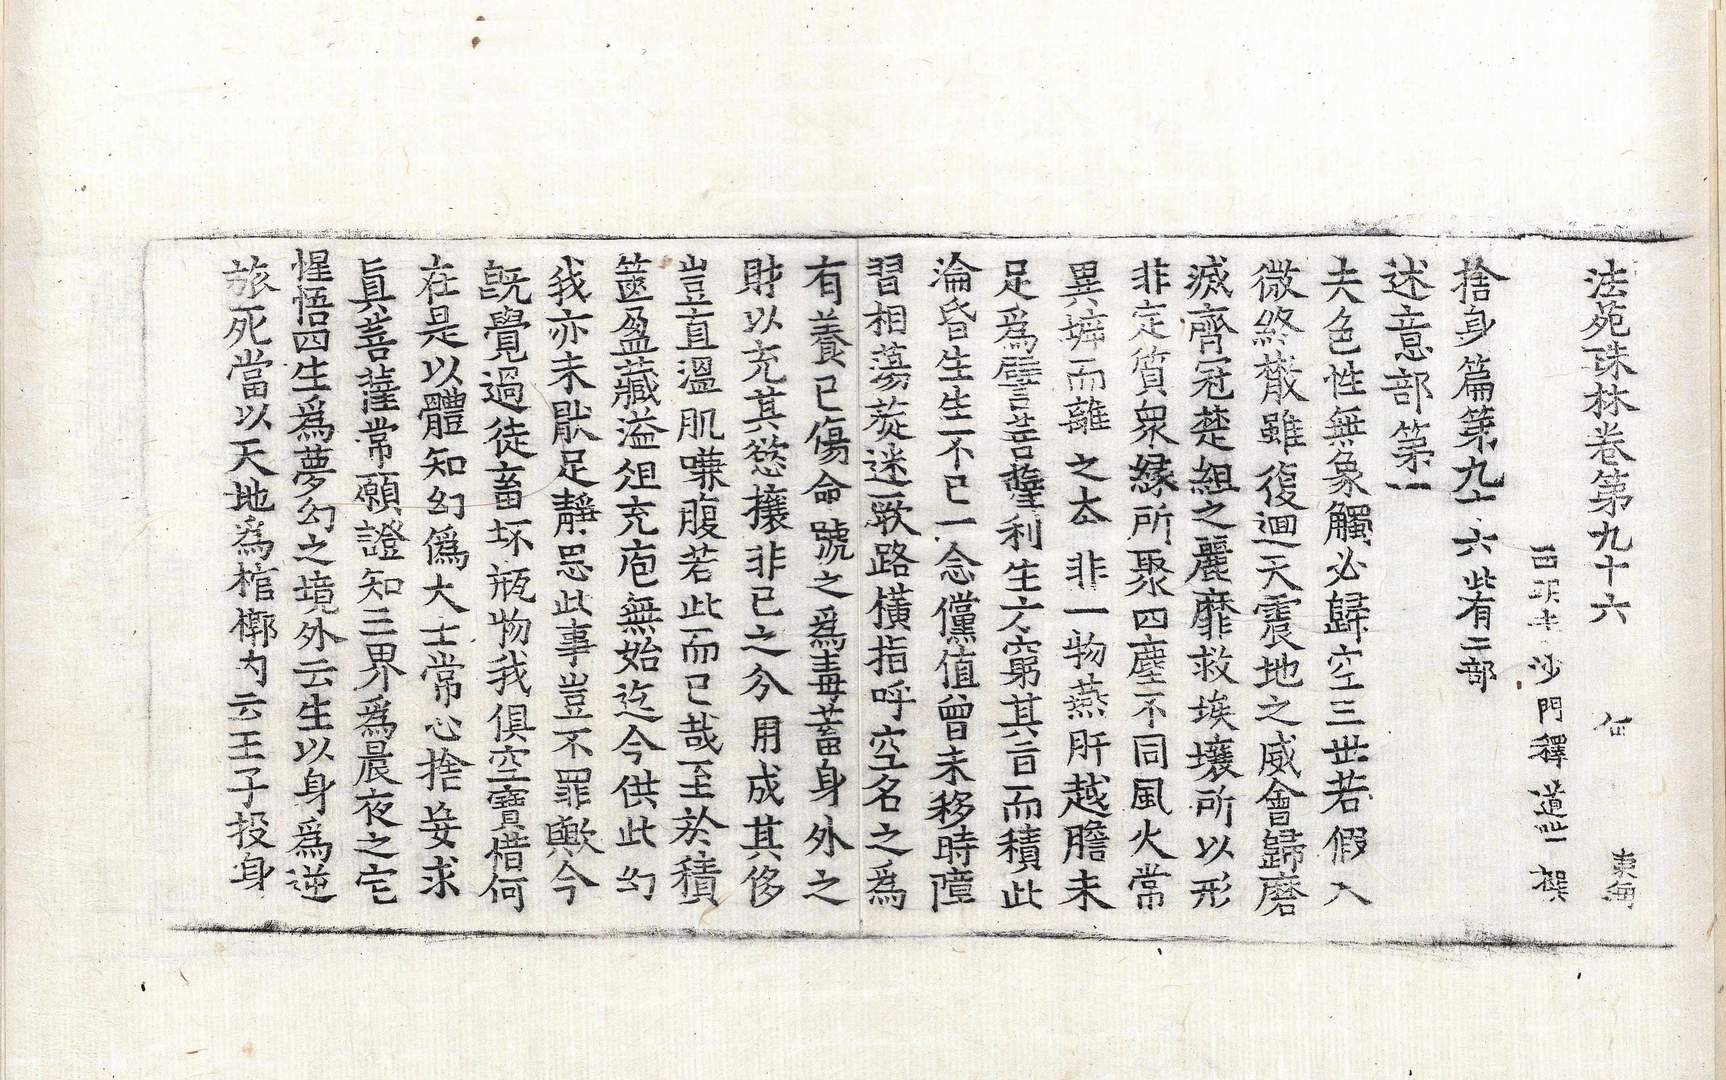 法苑珠林卷第九十六
西明寺沙門釋道世撰
捨身篇第九十六此有二部
述意部第一
夫色性無象觸必歸空三世若假入
微終散雖復迴天震地之威會歸磨
滅齊冠楚組之麗靡救埃壤所以形
非定質衆緣所聚四塵不同風火常
異坼而離之本非一物燕肝越膽未
足爲譬菩薩利生方窮其旨而積此
淪昏生生不已一念儻值曾未移時障
習相蕩旋迷厥路橫指呼空名之爲
有養已傷命號之爲毒蓄身外之
財以充其慾攘非已之分用成其侈
豈直溫肌嗛腹若此而已哉至於積
篋盈藏溢俎充庖無始迄今供此幻
我亦未猒足靜思此事豈不罪歟今
旣覺過徒畜坏瓶物我俱空寶惜何
在是以體知幻僞大士常心捨妄求
眞菩薩常願證知三界爲晨夜之宅
惺悟四生爲夢幻之境外云生以身爲逆
旅死當以天地爲棺槨内云王子投身